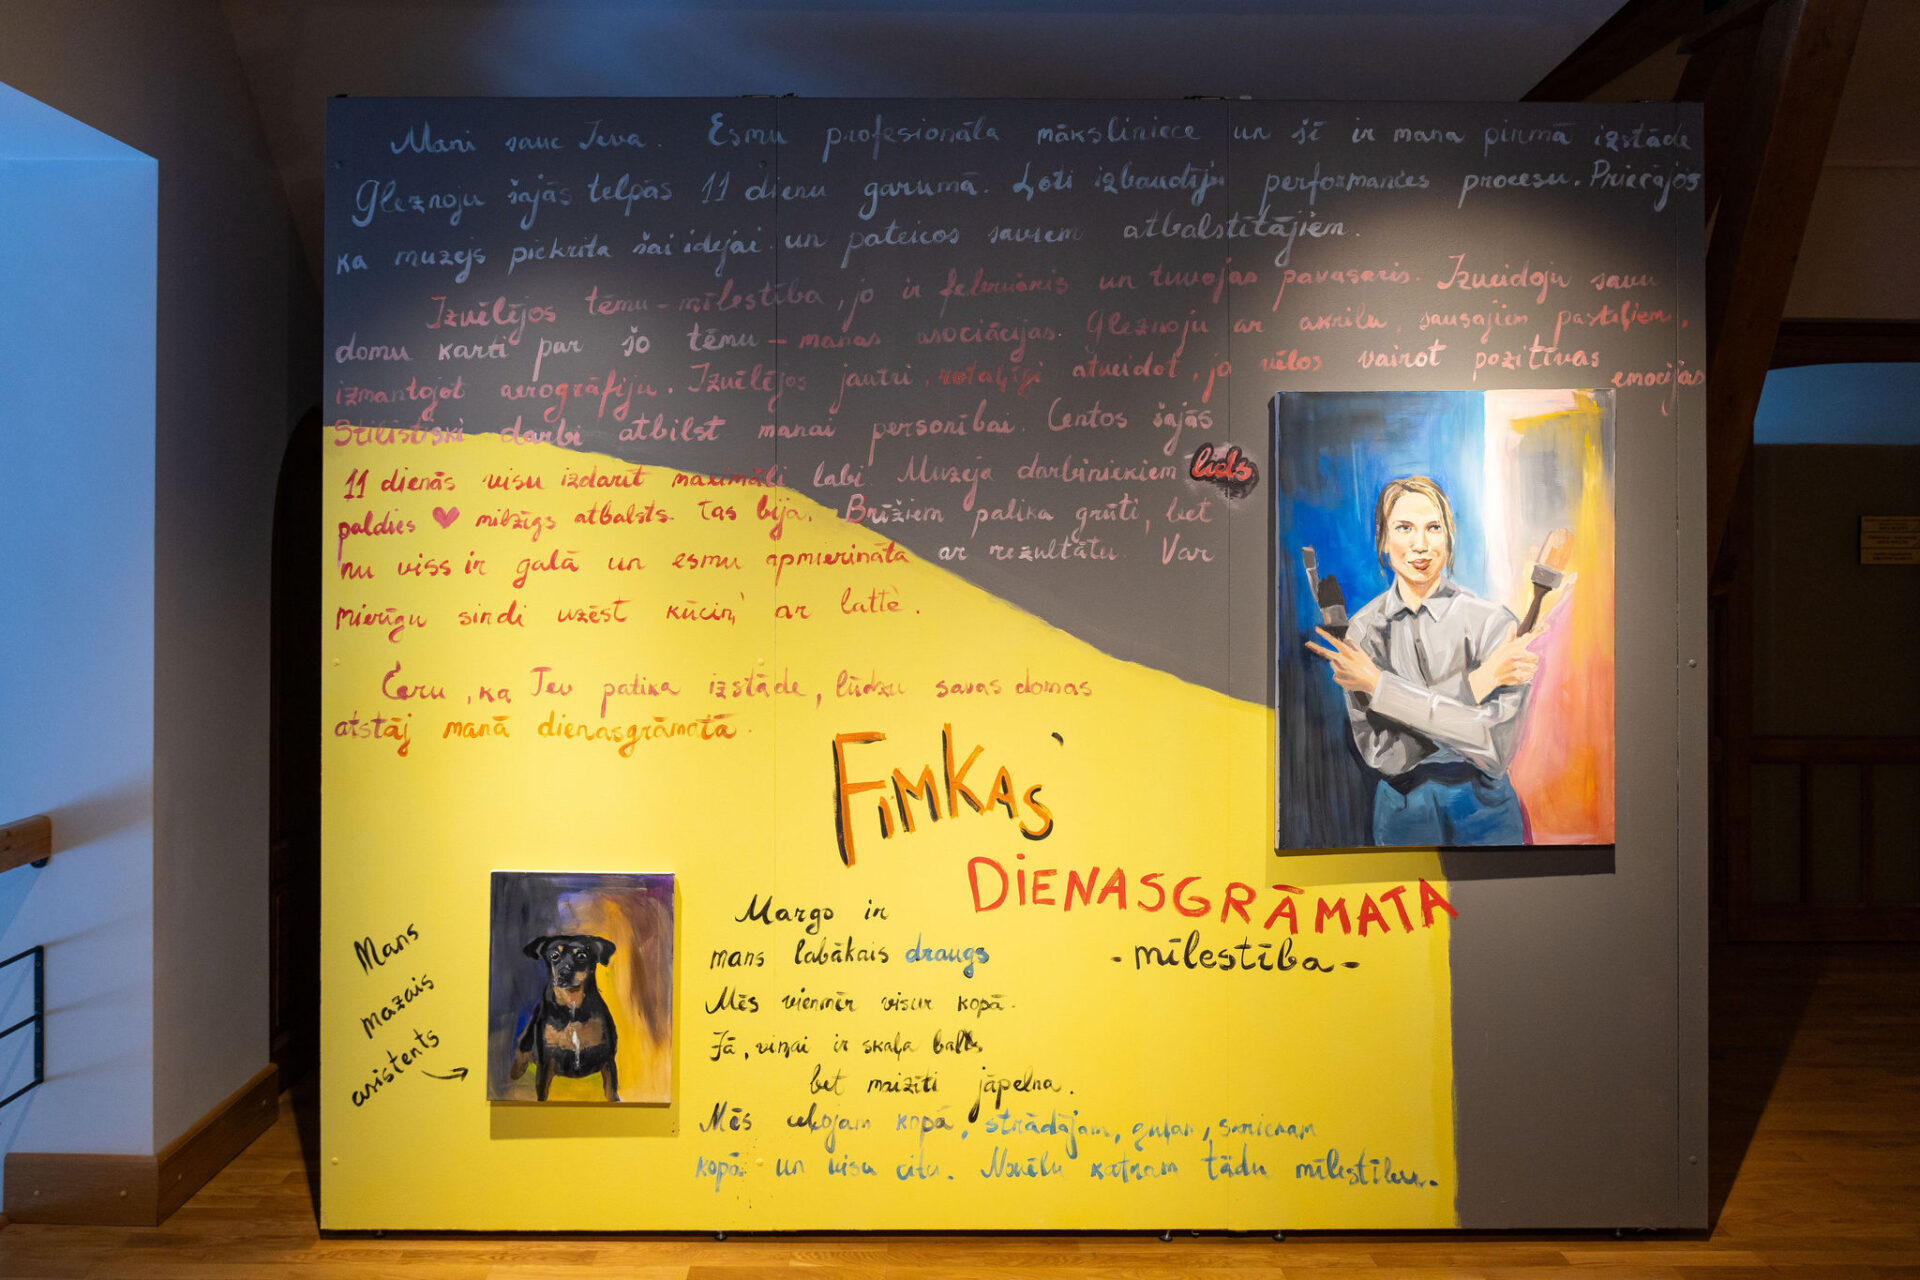 Mani sauc Ieva. Esmu profesionāla māksliniece un šī ir mana pirmā izstāde
Gleznoju šajās telpās 11 dienu garumā. Ļoti izbaudīju performances procesu. Priecājos
ka muzejs piekrita šai idejai un pateicos saviem atbalstītājiem.
Izvēlējos tēmu - mīlestība, jo ir februāris un tuvojas pavasaris. Izveidoju savu
domu karti par šo tēmu - manas asociācijas. Gleznoju ar akrilu, sausajiem pasteļiem,
izmantojot aerogrāfiju. Izvēlējos jautri, rotaļīgi atveidot, jo vēlos vairot pozitīvas emocijas
Stilistiski darbi atbilst manai personībai. Centos šajās
11 dienās visu izdarīt maximāli labi. Muzeja darbiniekiem liels
paldies ♥ milzīgs atbalsts tas bija. Brīžiem palika grūti, bet
nu viss ir galā un esmu apmierināta ar rezultātu. Var
mierīgu sirdi uzēst kūciņ' ar lattè.
Ceru, ka Tev patika izstāde, lūdzu savas domas
atstāj manā dienasgrāmatā.
FiMKAS'
DiENASGRĀMATA
- mīlestība -
Mans
mazais
asistents
Margo ir
mans labākais draugs
Mēs vienmēr visur kopā.
Jā, viņai ir skaļa balss
bet mizīti jāpelna.
Mēs ceļojam kopā, strādājam, guļam, smienam
kopā un visu citu. Novēlu katram tādu mīlestību.